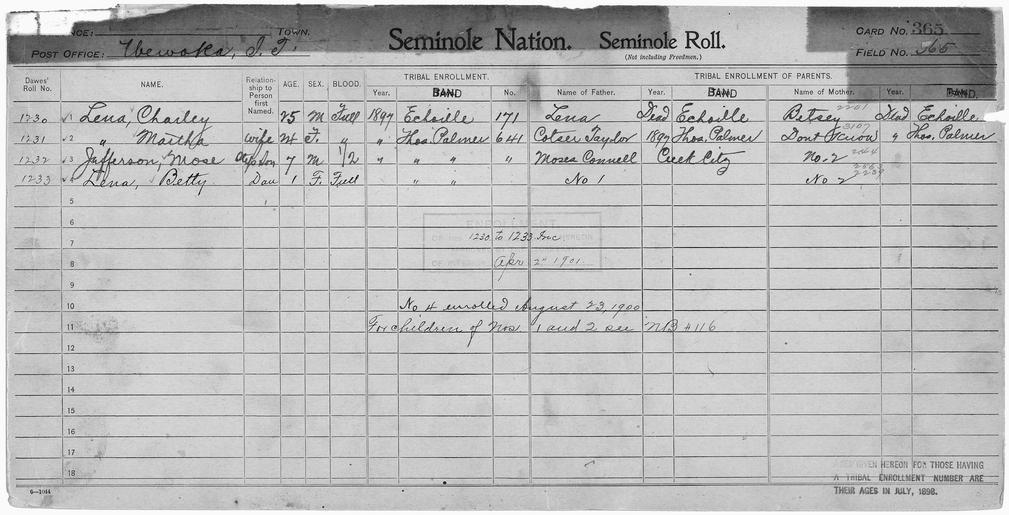 NCE: TOWN.
POST OFFICE: Wewoka, I. T.
Seminole Nation. Seminole Roll.
(Not including Freedmen.)
CARD No. 365
FIELD No. 365
Dawes' Roll No. NAME. Relationship to Person first Named. AGE. SEX. BLOOD. TRIBAL ENROLLMENT. TRIBAL ENROLLMENT OF PARENTS.
Year. BAND No. Name of Father. Year. BAND Name of Mother. Year. BAND.
1230 1 Lena, Charley 25 M Full 1897 Echoille 171 Lena Dead Echoille Betsey Dead Echoille
1231 2 " Martha wife 24 F. " " Thos. Palmer 641 Cotser Taylor 1897 Thos. Palmer Dont Know " Thos. Palmer
1232 3 Jefferson, Mose Stepson 7 M 1/2 " " " " Moses Connell Creek City No. 2
1233 4 Lena, Betty Dau 1 F. Full " " No 1 No 2
5
6
ENROLLMENT
7 1230 to 1233 Inc HEREON
8 Apr 2" 1901.
9
10 No 4 enrolled August 23, 1900
11 For children of Nos. 1 and 2 see NB #116
12
13
14
15
16
17
18
HEREON FOR THOSE HAVING
A TRIBAL ENROLLMENT NUMBER ARE
THEIR AGES IN JULY, 1898.
6—1044